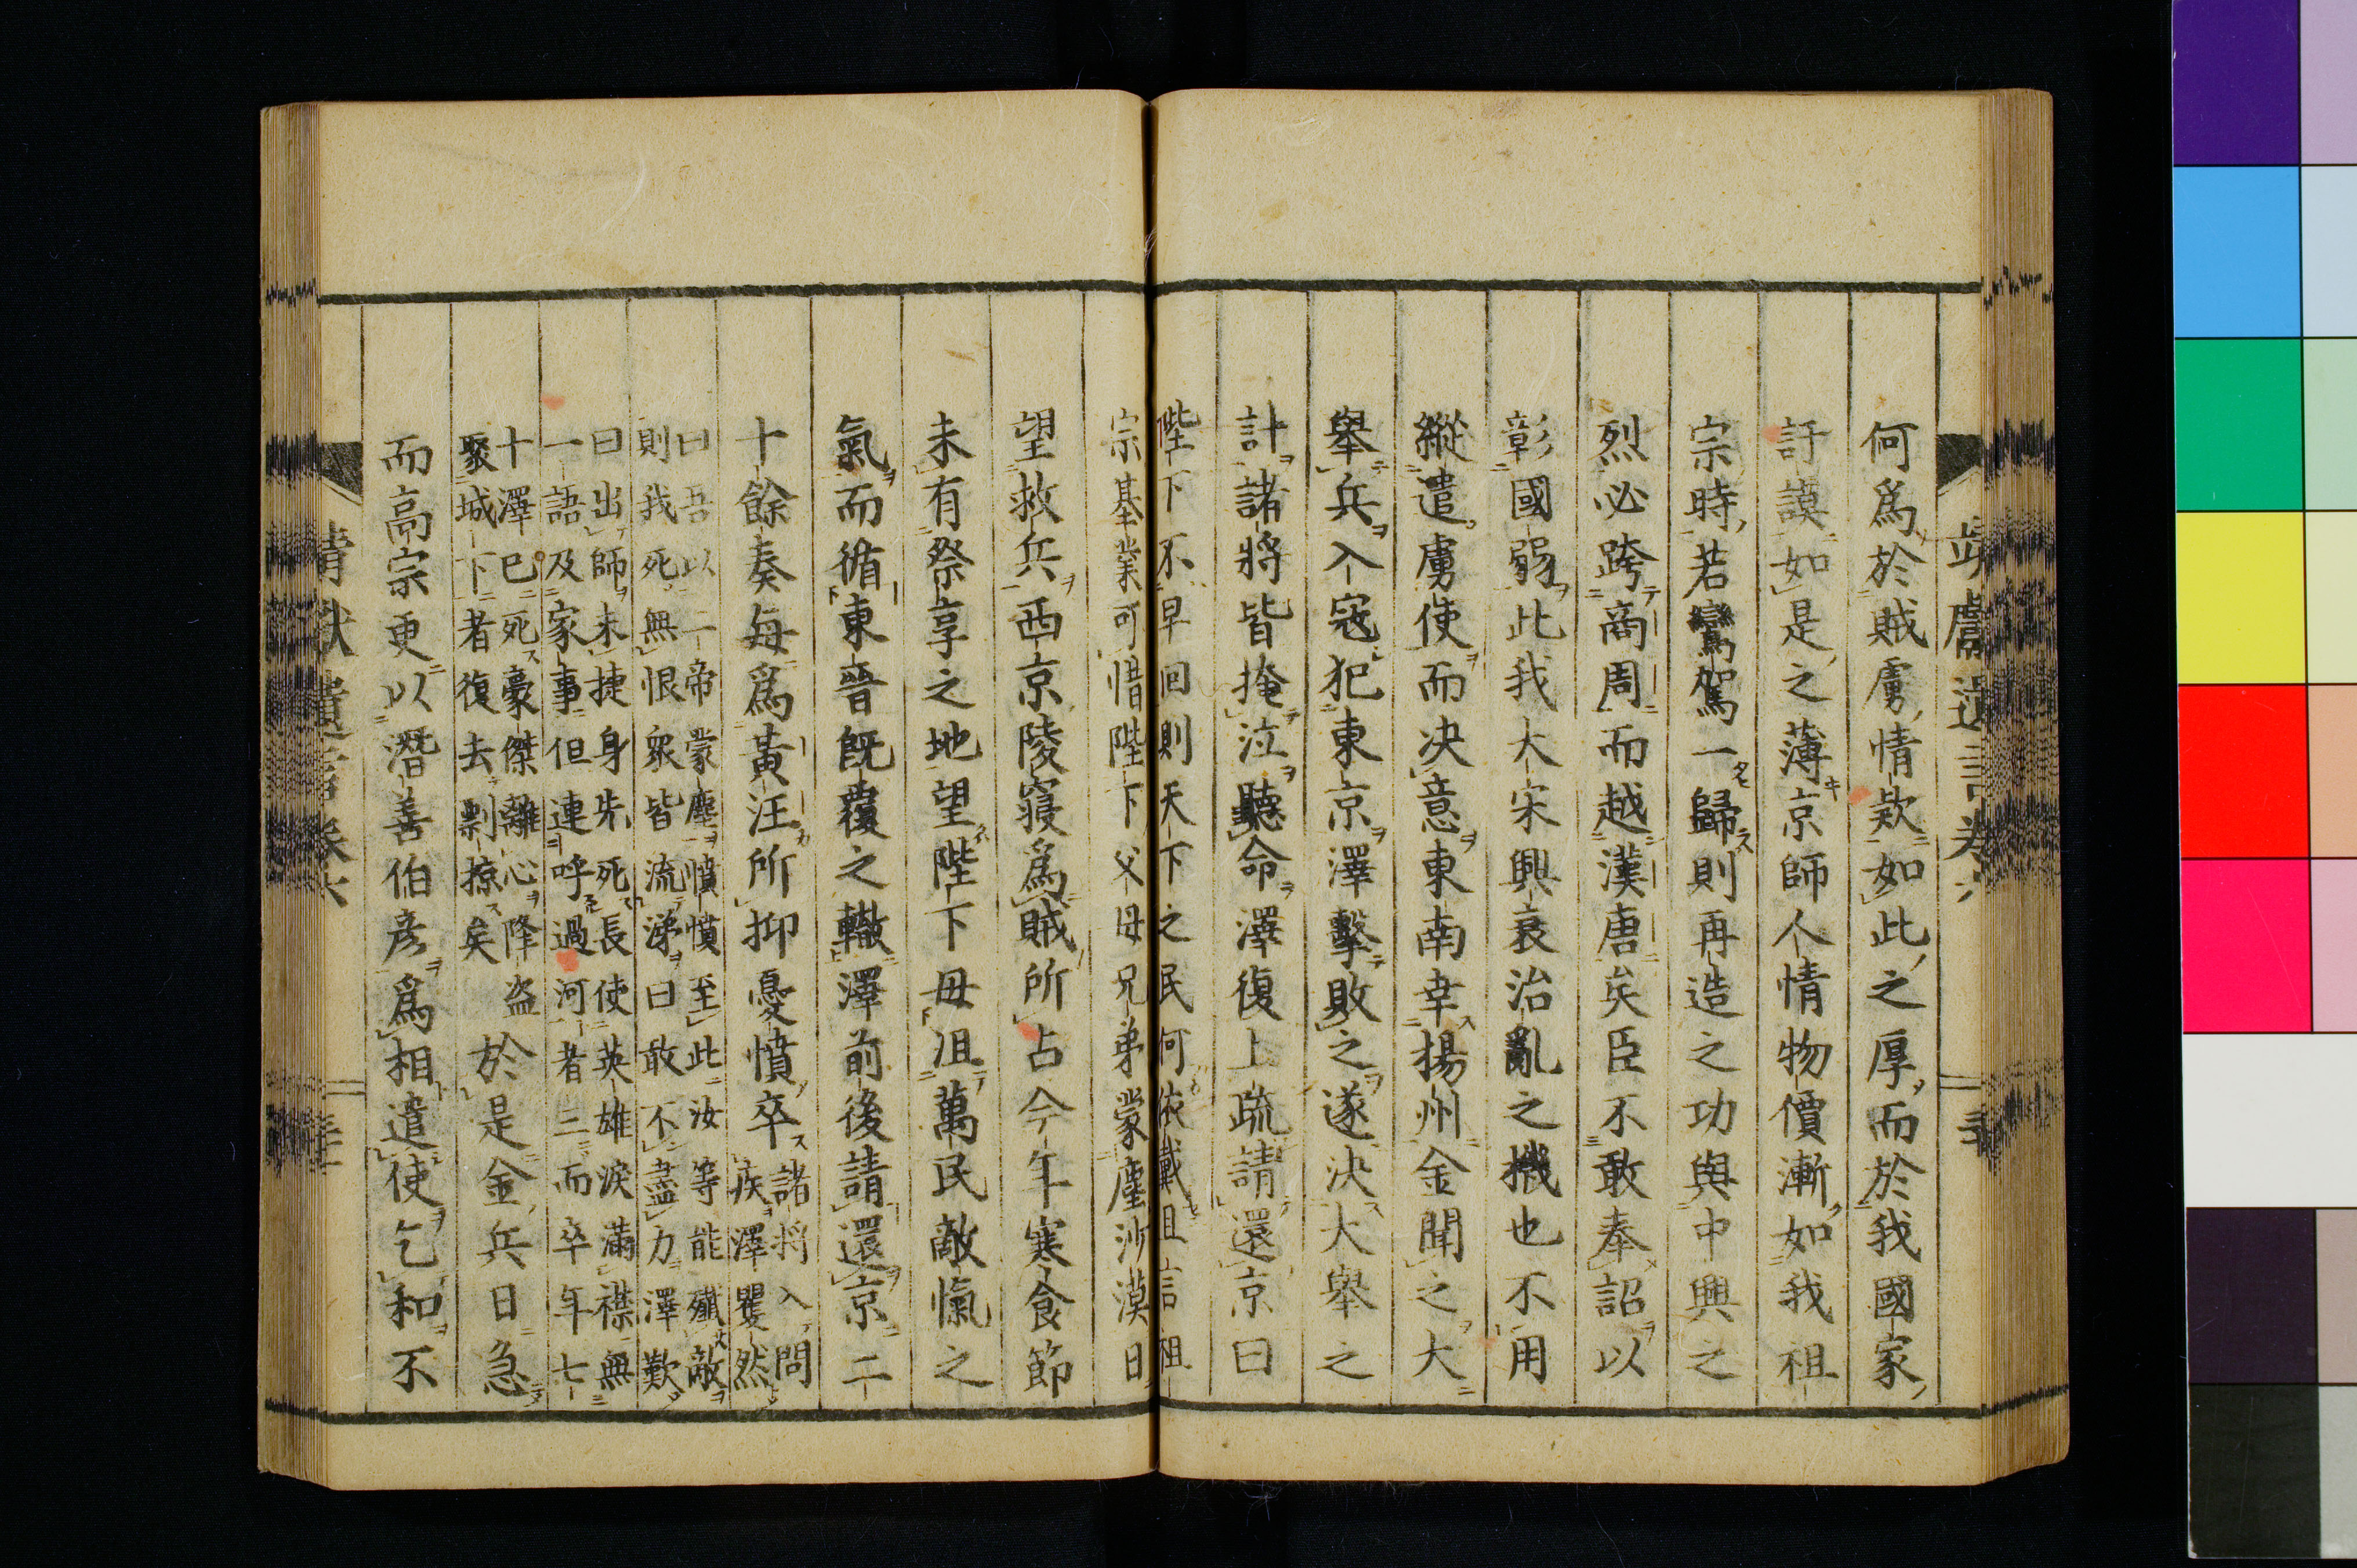 何爲於賊虜情欵如此之厚而於我國家
訏謨如是之薄京師人情物價漸如我祖
宗時若鸞駕一歸則再造之功與中興之
烈必跨商周而越漢唐矣臣不敢奉詔以
彰國弱此我大宋興衰治亂之機也不用
縱遣虜使而决意東南幸揚州金聞之大
舉兵入寇犯東京澤擊敗之遂決大舉之
計諸將皆掩泣聽命澤復上疏請還京曰
陛下不早回則天下之民何依戴
宗基業可惜陛下父母兄弟蒙塵沙漠日
望救兵西京陵寝爲賊所占今年寒食節
未有祭享之地望陛下毋沮萬民敵愾之
氣而循東晉既覆之轍澤前後請還京二
十餘奏毎爲黃汪所抑憂憤卒諸将入問
疾澤矍然
曰吾以二帝蒙塵憤憤至此汝等能殲敵
則我死無恨衆皆流涕曰敢不盡力澤歎
曰出師未捷身先死長使英雄淚滿襟無
一語及家事但連呼過河者三而卒年七
十澤已死豪傑離心降盗
聚城下者復去剽掠矣
於是金兵日急
而高宗更以潛善伯彦爲相遣使乞和不